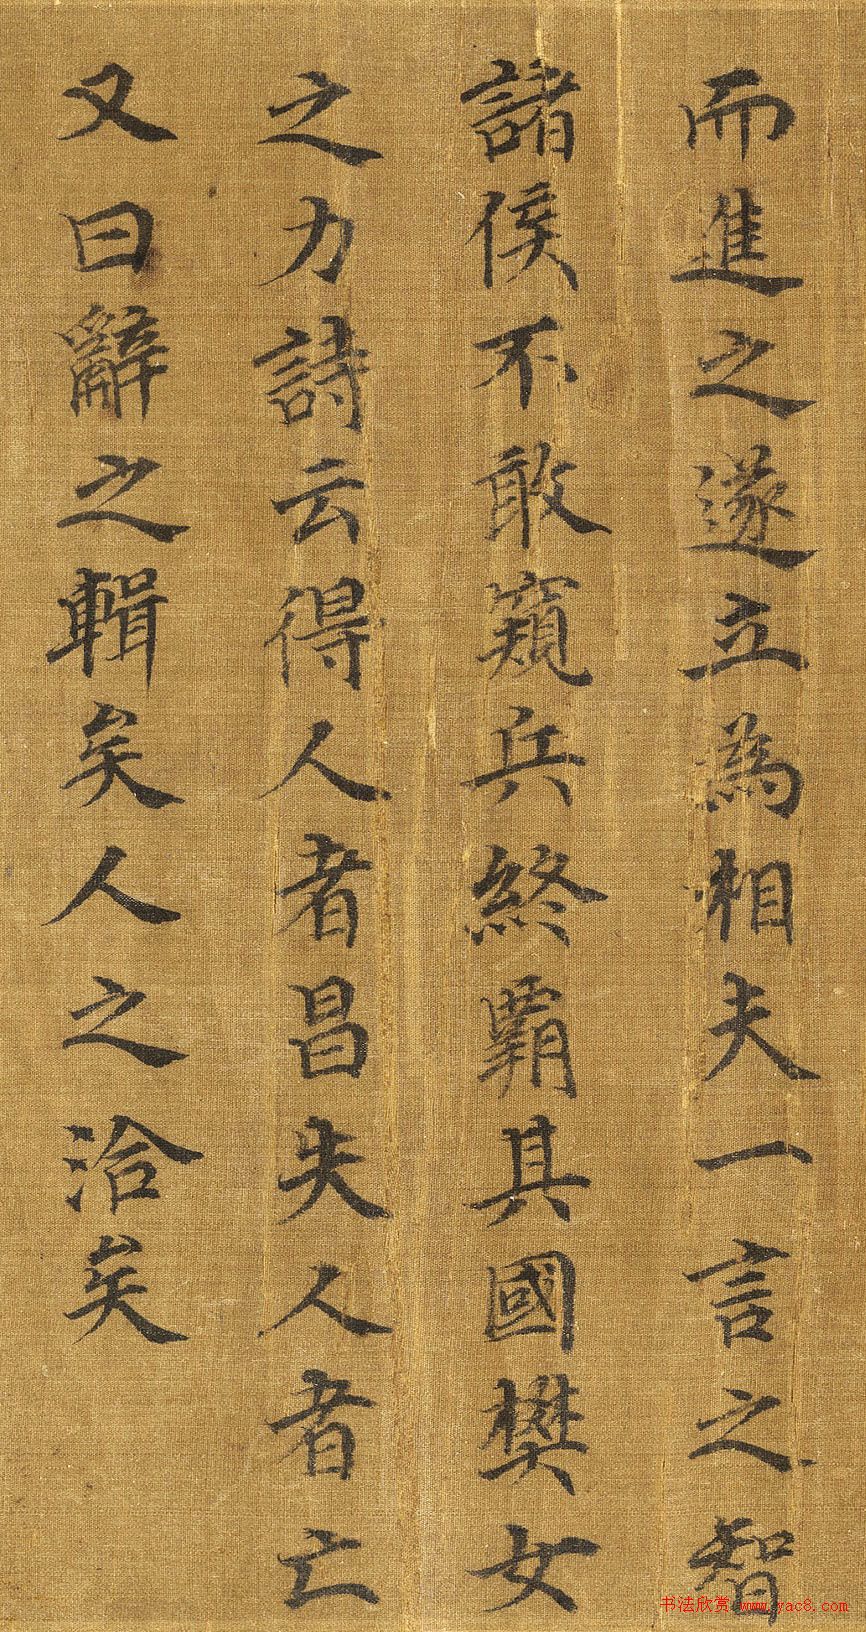 而進之遂立為相夫一言之智
諸侯不敢窺兵終霸其國樊女
之力詩云得人者昌失人者亡
又曰辭之輯矣人之洽矣
书法欣赏 www.yac8.com